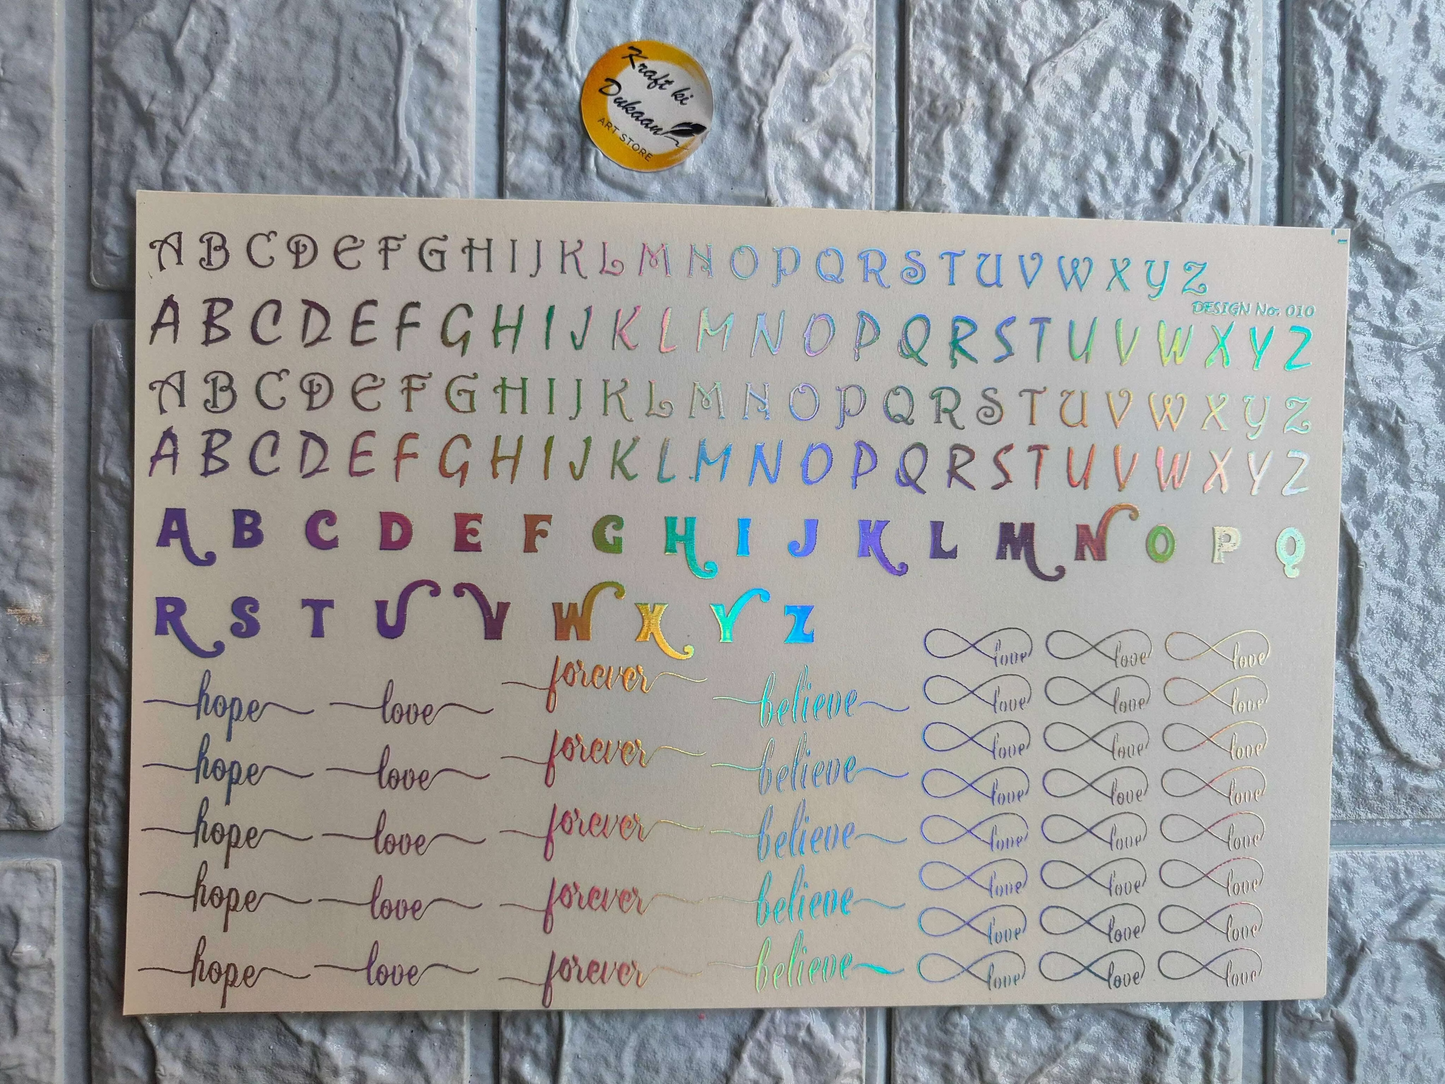 Kraft ki
Dukaan
ART STORE
A B C D E F G H I J K L M N O P Q R S T U V W X Y Z
DESIGN No. 010
A B C D E F G H I J K L M N O P Q R S T U V W X Y Z
A B C D E F G H I J K L M N O P Q R S T U V W X Y Z
A B C D E F G H I J K L M N O P Q R S T U V W X Y Z
A B C D E F G H I J K L M N O P Q
R S T U V W X Y Z
love love love
hope love forever believe love love love
love love love
hope love forever believe love love love
hope love forever believe love love love
hope love forever believe love love love
love love love
hope love forever believe love love love